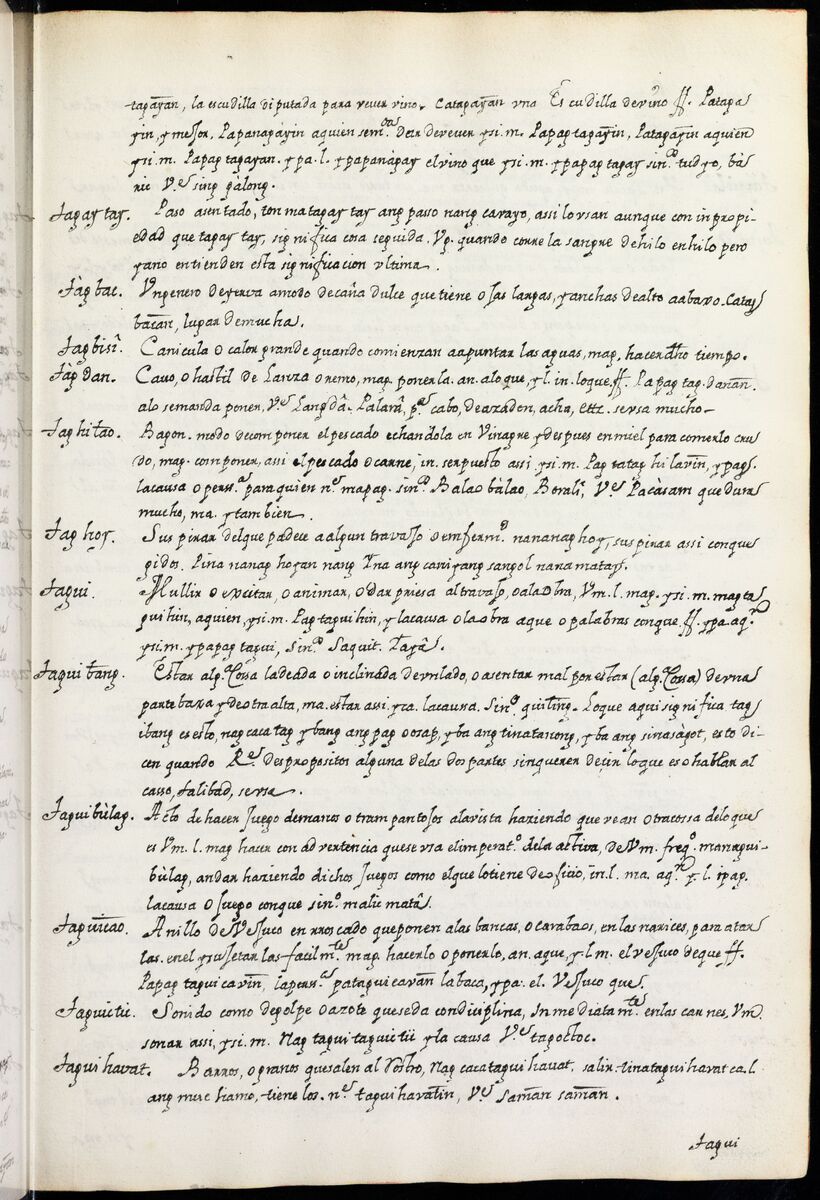 tagayan, la escudilla diputada para vever vino. Catagayan vna Escudilla de vino ff. Pataga
yin, y messor, Papanagayin aquien sem.da dar de vever ysi.m. Papag tagayin, Patagayin aquien
ysi.m. Papag tagayan. y pa.l. y papanagay el vino que ysi.m. y papag tagay sin.o tudyo, bà
ric V.e sing gàlong.
Tagaytay. Paso asentado, ton matagay tay ang passo nang cavayo, assi lo vsan aunque con inpropi-
edad que tagay tay, significa cosa seguida. Vg. quando corre la sangre de hilo en hilo pero
ya no entienden esta significacion vltima.
Tàg bac. Vn genero de yerva a modo de caña dulce que tiene ojas largas, y anchas de alto a abaxo. Catag
bacan, lugar de mucha.
Tagbisi. Canicula o calor grande quando comienzan a apuntar las aguas, mag. hacer dho tiempo.
Tàg dan. Cavo, o hastil de Lanza o remo, mag. ponerla. an. alo que, y l. in. loque ff. Papag tag danan.
alo se manda poner, V.e Langdà. Palarà, p.a cabo, de azadon, acha, ettz. se vsa mucho-
Taghilao. Bagon. modo de componer el pescado echandola en Vinagre y despues en miel para comerlo cru
do, mag. componer, assi el pescado o carne, in. ser puesto assi ysi.m. Pag tatag hilavin, y pag.
la causa o perss.a para quien n.e mapag. sin.o Balao bàlao, Borali, V.e Pacàsam que dura
mucho, ma. y tambien.
Tag hoy. Suspirar del que padece a algun travajo o enferm.d nananag hoy, suspirar assi con que
gidos. Pina nanag hoyan nang Yna ang caniyang sangol na namatay.
Tagui. Mullir o excitar, o animar, o dar priesa al travajo, o ala obra, Vm. l. mag. ysi.m. mag ta
gui hin, aquien, ysi.m. Pag tagui hin, y la causa o la obra a que o palabras con que ff. y pa. aq.n
ysi.m. y papag tagui, Sin.o Saguit. Tagà.
Tagui tang. Estar alg.a Cossa ladeada o inclinada de vn lado, o asentar mal por estar (alg.a Cossa) de vna
parte baxa y de otra alta, ma. estar assi y ca. la causa. Sin.o quiling. Lo que aqui significa tag
ibang es esto, nag caca tag ybang ang pag o osap, yba ang tinatanong, yba ang sinasàgot, esto di-
cen quando R.e despropositos alguna de las dos partes sin querer decir lo que es o hablar al
casso, talibad, se vsa.
Taguibùlag. Acto de hacer Juego de manos o trampantojos a la vista haziendo que vean otra cossa de lo que
es Vm. l. mag hacer con advertencia que se vsa el imperat.o de la activa, de Vm. freq.o managui-
bùlag, andar haziendo dichos Juegos como el que lo tiene de oficio, in. l. ma. aq.n y. l. ipag.
la causa o Juego con que sin.o malic matà.
Taguicao. Anillo de Vejuco en rroscado que ponen a las bancas, o carabaos, en las narices, para atar
las. en el y sujetar las facilm.te mag. hacerlo o ponerlo, an. aque, y l m. el vejuco de que ff.
Papag tagui cavin, la perss.a pataguicavan la baca, y pa. el. Vejuco que.
Taguictic. Sonido como de golpe o azote que se da con diciplina, Inmediatam.te en las carnes, Vm.
sonar assi, ysi.m. Nag tagui taguictic y la causa V.e tagoctoc.
Taguihavat. Barros, o granos que salen al Rostro, Nag caca tagui havat, salir. tinatagui havat ca.l.
ang muc hamo, tiene los. n.e tagui havatin, V.e saman saman.
Tagui